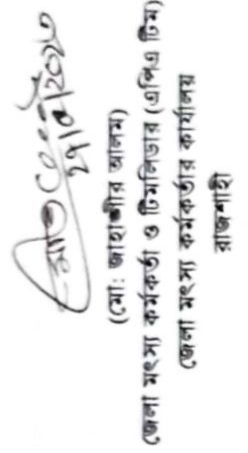 (মো: জাহাঙ্গীর আলম)
জেলা মৎস্য কর্মকর্তা ও টিমলিডার (এপিএ টিম)
জেলা মৎস্য কর্মকর্তার কার্যালয়
রাজশাহী